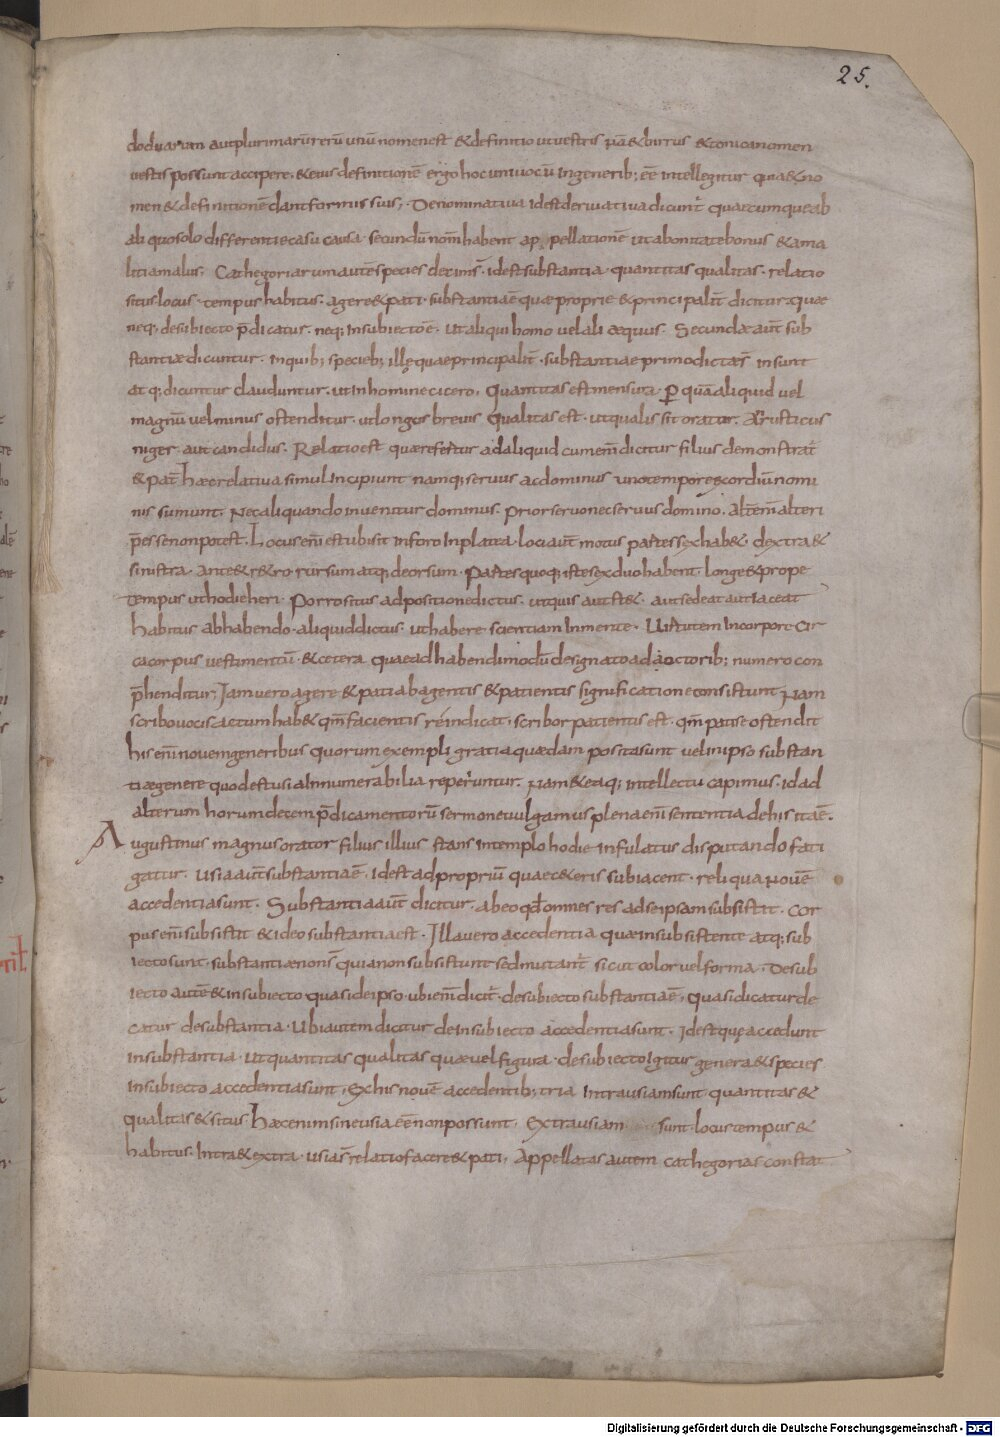 25.
do duarum aut plurimarū rerū unū nomen est & definitio ut vestis nā & birrus & tonica nomen
vestis possunt accipere · & eius definitionē ergo hoc univocū in generib; eē intellegitur quia & no
men & definitionē dant formis suis; Denominativa id est derivativa dicunt̄ quaecumque ab
aliquo solo differentie casu causa secundū nom̄ habent appellationē ut a bonitate bonus & a ma
litia malus; Cathegoriarum autē species decim̄ s̄ · id est substantia · quantitas qualitas · relatio
situs · locus · tempus habitus · agere & pati · substantia ē quae proprie & principalit̄ dicitur quae
neq; de subiecto p̄dicatur · neq; in subiecto ē · ut aliqui homo vel ali aequus · Secundae aut̄ sub
stantiae dicuntur · in quib; specieb; ille quae principalit̄ · substantiae primo dictae s̄ insunt
atq; dicuntur clauduntur · ut in homine cicero · Quantitas est mensura · P quā aliquid vel
magnū vel minus ostenditur · ut longus brevis Qualitas est · ut qualis sit orator · A rusticus
niger · aut candidus · Relatio est quae refertur ad aliquid cum em̄ dicitur filius demonstrat̄
& pat̄ haec relativa simul incipiunt namq; servus ac dominus uno tempore excordiū nomi
nis sumunt · Nec aliquando invenitur dominus · prior servo nec servus domino · Alt̄ em̄ alteri
p̄esse non potest · Locus em̄ est ubi sit in foro in platea · loci aut̄ motus partes sex hab& · dextra &
sinistra · ante & r&ro · rursum atq; deorsum · Partes quoq; iste sex duo habent · longe & prope
tempus ut hodie heri · Porro situs a positione dictus · ut quis aut st& · aut sedeat aut iaceat
habitus ab habendo · aliquid dictus · ut habere scientiam in mente · Virtutem in corpore · Cir
ca corpus vestimentū · & cetera quae ad habendi modū designato ad doctorib; numero con
p̄henditur; Iam vero agere & pati ab agentis & patientis significatione consistunt Nam
scribo vocis actum hab& qm̄ facientis rē indicat · scribor patientis est · qm̄ patise ostendit
his em̄ novem generibus quorum exempli gratia quaedam posita sunt vel in ipso substan
tiae genere quod est usia innumerabilia reperiuntur · Nam & ea q; intellectu capimus · id ad
alterum horum decem p̄dicamentorū sermone vulgamus plena em̄ sententia de his ita ē ·
Augustinus magnus orator filius illius stans in templo hodie infulatus disputando fati
gatur · Usia aut̄ substantia ē · id est ad propriū quae c&eris subiacent · reliqua novē
accedentia sunt · Substantia aut̄ dicitur · ab eo qd omnes res ad se ipsam subsistit · Cor
pus em̄ subsistit & ideo substantia est · Illa vero accedentia quae in subsistente atq; sub
iecto sunt · substantiae non s̄ quia non subsistunt sed mutant̄ sicut color vel forma · De sub
iecto autē & in subiecto quasi de ipso · ubi em̄ dicit̄ · de subiecto substantia ē · quasi dicatur de
catur de substantia · Ubi autem dicitur de in subiecto accedentia sunt · Id est que accedunt
in substantia · ut quantitas qualitas quae vel figura · de subiecto igitur genera & species
in subiecto accedentia sunt · Ex his novē accedentib; tria intra usiam sunt quantitas &
qualitas & situs · haec enim sine usia eē non possunt · Extra usiam sunt · locus tempus &
habitus · Intra & extra · usia s̄ relatio facere & pati · Appellatas autem cathegorias constat
Digitalisierung gefördert durch die Deutsche Forschungsgemeinschaft - DFG